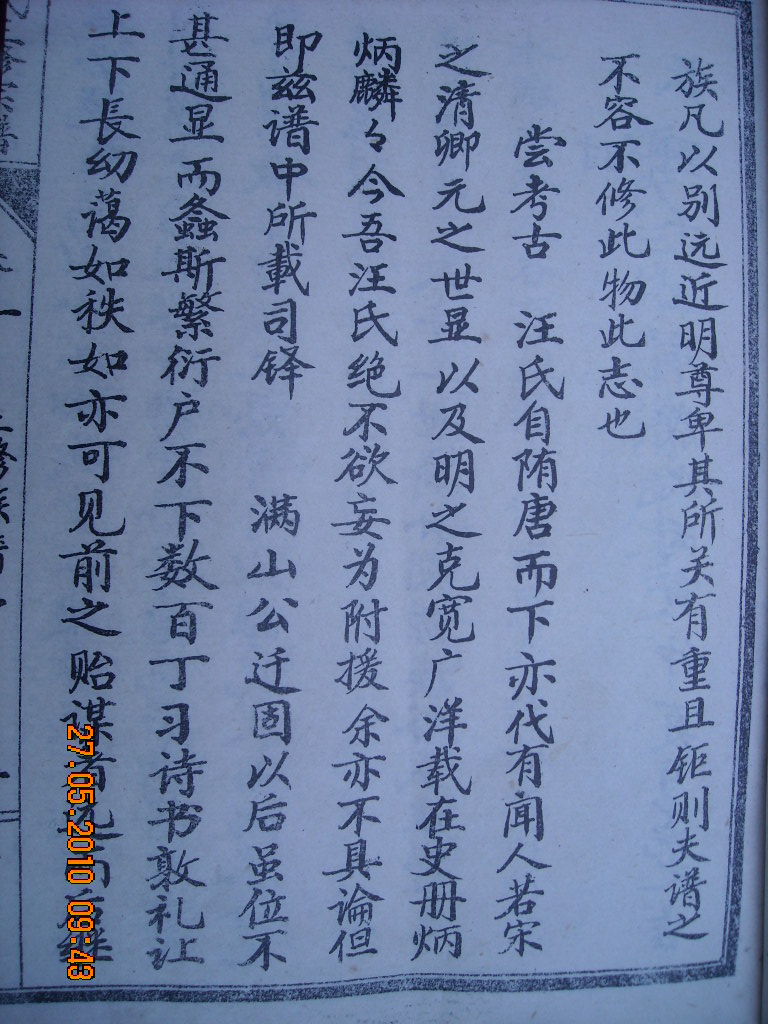 族凡以别远近明尊卑其所关有重且钜则夫谱之
不容不修此物此志也
尝考古 汪氏自隋唐而下亦代有闻人若宋
之清卿元之世显以及明之克宽广洋载在史册炳
炳麟々今吾汪氏绝不欲妄为附援余亦不具論但
即兹谱中所載司铎 满山公迁固以后虽位不
甚通显而螽斯繁衍户不下数百丁习诗书敦礼让
上下長幼蔼如秩如亦可见前之贻谋者远而后
27.05.2010 09:43